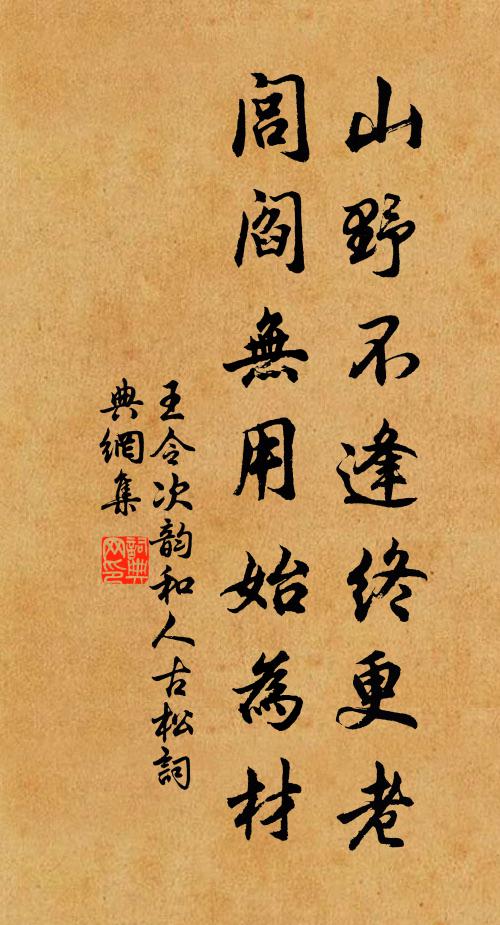 山野不逢終更老
閭閻無用始為材
王令次韵和人古松詞
典網集
詞典
网印